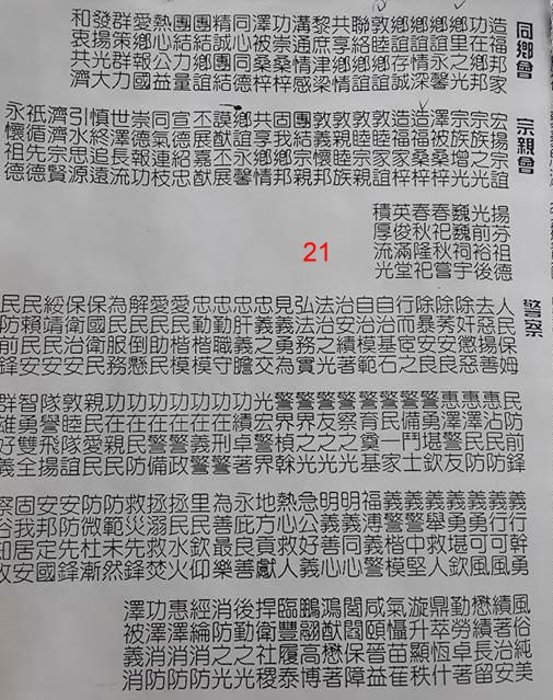 同鄉會
造福邦家
功在鄉邦
鄉里之光
鄉誼永馨
鄉誼情深
鄉誼存誠
敦睦鄉誼
聯絡鄉誼
共享鄉情
黎庶津梁
溝通情感
功崇桑梓
澤被桑梓
同心同德
精誠團結
團結鄉誼
團結力量
熱心公益
愛鄉報國
群策群力
發揚光大
和衷共濟
宗親會
宏揚宗誼
宗族之光
宗族增光
澤被桑梓
造福桑梓
造福家梓
敦睦宗誼
敦睦宗親
敦親睦族
敦義懷邦
團結宗親
固我鄉邦
共享鄉情
鄉誼永馨
丕展嘉猷
宣德紹忠
同氣連枝
崇德報功
世澤長流
慎終追遠
引水思源
濟濟宗賢
祇循先德
永懷祖德
揚芬祖德
光前裕後
巍巍祠宇
春祀秋嘗
春秋隆祀
英俊滿堂
積厚流光
21
警察
人民保姆
去惡揚善
除奸懲惡
除莠安良
除暴安良
自治基石
自治模範
治安績著
法治之光
弘法務實
見義勇為
忠義之勇
忠肝義膽
忠勤職守
忠勤楷模
愛民楷模
愛民助民
解民倒懸
為民服務
保國衛民
保衛治安
綏靖民安
民賴以安
民防前鋒
民防前鋒
惠沾民防
惠澤民防
惠澤警友
警勇堪欽
警備鬥士
警民一家
警察之光
警友之光
警界之光
警界楨幹
光宏警界
功績卓著
功在刑警
功在義警
功在警政
功在警備
功在民防
親民愛民
敦睦隊誼
隊譽飛揚
智勇雙全
群雄好義
義行可風
義勇可風
義勇堪欽
義舉救人
義警中堅
義警楷模
福溥義警
明義同心
明義善心
急公好義
熱心救人
地方貢獻
永庇良善
為善最樂
里民欽仰
拯民水火
拯溺救焚
救災先鋒
防範未然
防微杜漸
安防先鋒
安邦定國
固我居安
察俗知政
風俗純美
績著治安
懋績長留
勤勞卓著
閭閻保障
鴻猷懋著
臨豐履泰
捍衛社稷
後勤之光
消防之光
經綸消防
惠澤消防
功澤消防
澤被義消